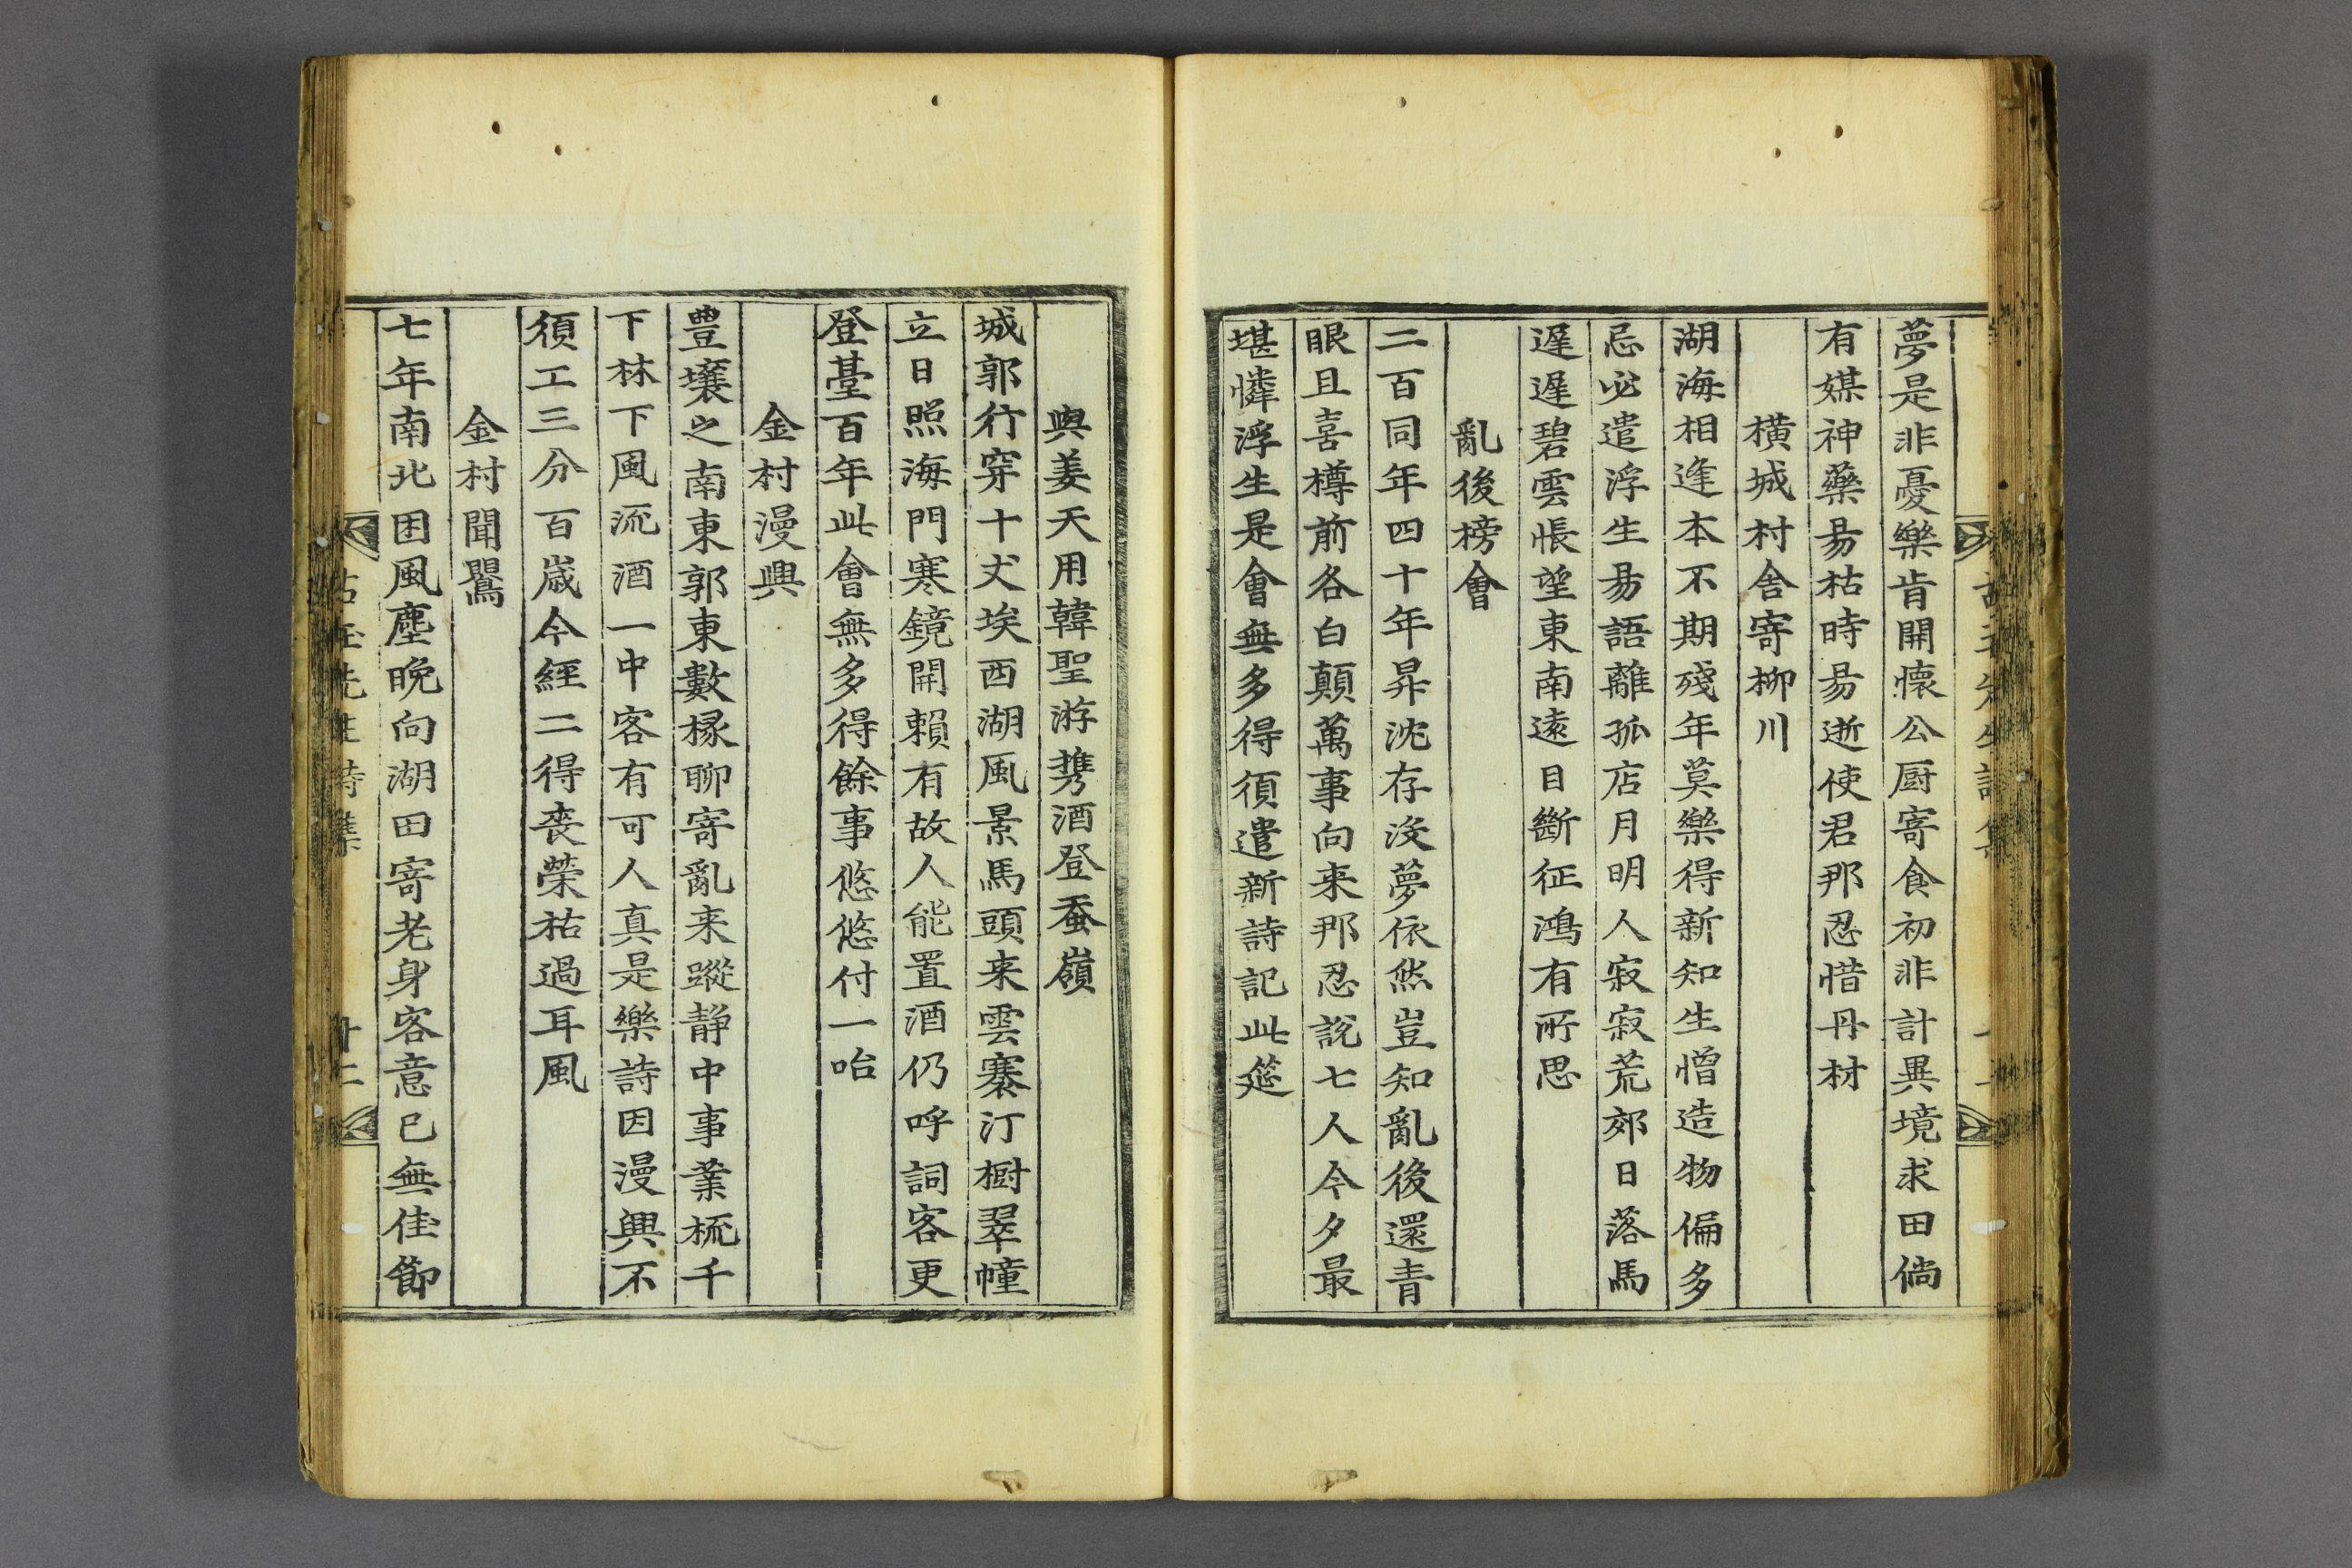 夢是非憂樂肯開懷公厨寄食初非計異境求田倘
有媒神藥易枯時易逝使君那忍惜丹材
橫城村舍寄柳川
湖海相逢本不期殘年莫樂得新知生憎造物偏多
忌必遣浮生易語離孤店月明人寂寂荒郊日落馬
遲遲碧雲悵望東南遠目斷征鴻有所思
亂後榜會
二百同年四十年昇沈存沒夢依然豈知亂後還青
眼且喜樽前各白顛萬事向来那忍說七人今夕最
堪憐浮生是會無多得須遣新詩記此筵
與姜天用韓聖游携酒登蚕嶺
城郭行穿十丈埃西湖風景馬頭来雲褰汀樹翠幢
立日照海門寒鏡開賴有故人能置酒仍呼詞客更
登臺百年此會無多得餘事悠悠付一咍
金村漫興
豊壤之南東郭東數椽聊寄亂来蹤静中事業梳千
下林下風流酒一中客有可人真是樂詩因漫興不
須工三分百歲今經二得喪榮枯過耳風
金村聞鸎
七年南北困風塵晩向湖田寄老身客意已無佳節
先生詩集 十二